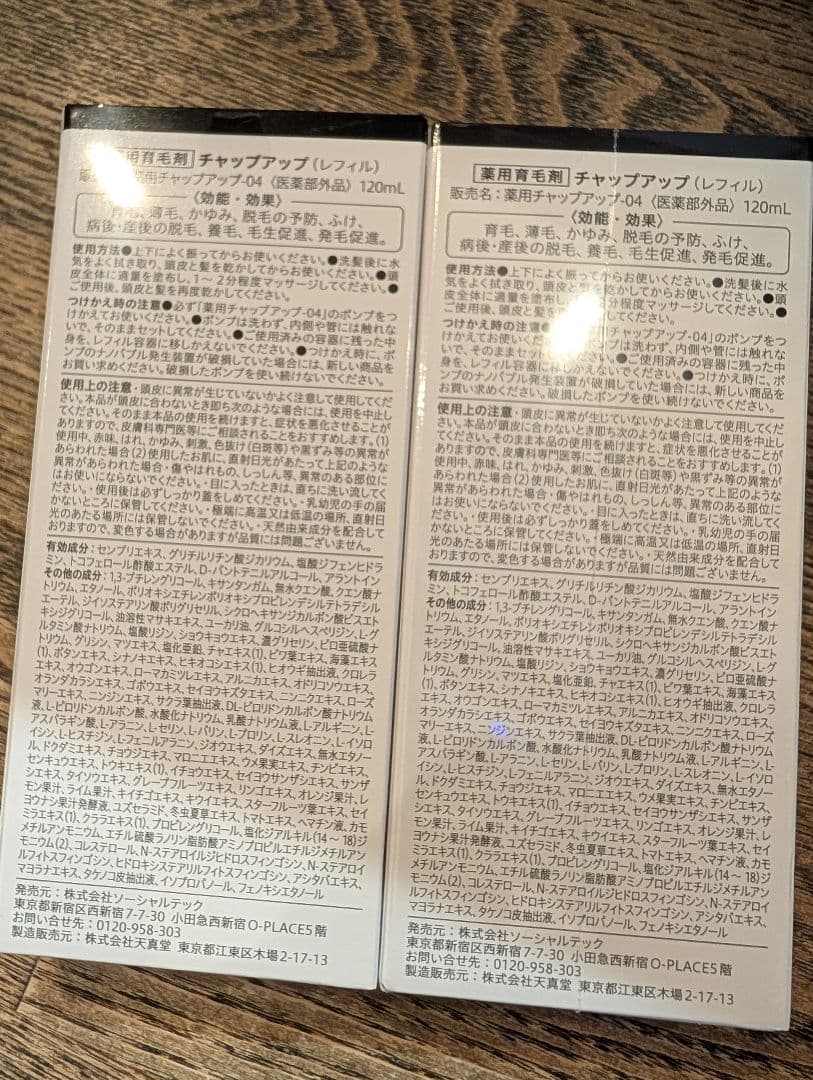 用育毛剤 チャップアップ（レフィル）
用チャップアップ-04〈医薬部外品〉120mL
〈効能・効果〉
育毛、薄毛、かゆみ、脱毛の予防、ふけ、
病後・産後の脱毛、養毛、毛生促進、発毛促進。
使用方法●上下によく振ってからお使いください。●洗髪後に水
気をよく拭き取り、頭皮と髪を乾かしてからお使いください。●頭
皮全体に適量を塗布し、1～2分程度マッサージしてください。●
ご使用後、頭皮と髪を再度乾かしてください。
つけかえ時の注意●必ず「薬用チャップアップ-04」のポンプをつ
けかえてお使いください。●ポンプは洗わず、内側や管には触れな
いで、そのままセットしてください。●ご使用済みの容器に残った中
身を、レフィル容器に移しかえないでください。●つけかえ時に、ポ
ンプのナノバブル発生装置が破損していた場合には、新しい商品を
お買い求めください。破損したポンプを使い続けないでください。
使用上の注意・頭皮に異常が生じていないかよく注意して使用してくだ
さい。本品が頭皮に合わないとき即ち次のような場合には、使用を中止し
てください。そのまま本品の使用を続けますと、症状を悪化させることが
ありますので、皮膚科専門医等にご相談されることをおすすめします。(1)
使用中、赤味、はれ、かゆみ、刺激、色抜け(白斑等)や黒ずみ等の異常が
あらわれた場合(2)使用したお肌に、直射日光があたって上記のような
異常があらわれた場合・傷やはれもの、しっしん等、異常のある部位に
はお使いにならないでください。・目に入ったときは、直ちに洗い流してく
ださい。・使用後は必ずしっかり蓋をしめてください。・乳幼児の手の届
かないところに保管してください。・極端に高温又は低温の場所、直射日
光のあたる場所には保管しないでください。・天然由来成分を配合して
おりますので、変色する場合がありますが品質には問題ございません。
有効成分：センブリエキス、グリチルリチン酸ジカリウム、塩酸ジフェンヒドラ
ミン、トコフェロール酢酸エステル、D-パントテニルアルコール、アラントイン
その他の成分：1,3-ブチレングリコール、キサンタンガム、無水クエン酸、クエン酸ナ
トリウム、エタノール、ポリオキシエチレンポリオキシプロピレンデシルテトラデシル
エーテル、ジイソステアリン酸ポリグリセリル、シクロヘキサンジカルボン酸ビスエト
キシジグリコール、油溶性マサキエキス、ユーカリ油、グルコシルヘスペリジン、L-グ
ルタミン酸ナトリウム、塩酸リジン、ショウキョウエキス、濃グリセリン、ピロ亜硫酸ナ
トリウム、グリシン、マツエキス、塩化亜鉛、チャエキス(1)、ビワ葉エキス、海藻エキス
(1)、ボタンエキス、シナノキエキス、ヒキオコシエキス(1)、ヒオウギ抽出液、クロレラ
エキス、オウゴンエキス、ローマカミツレエキス、アルニカエキス、オドリコソウエキス、
オランダカラシエキス、ゴボウエキス、セイヨウキズタエキス、ニンニクエキス、ローズ
マリーエキス、ニンジンエキス、サクラ葉抽出液、DL-ピロリドンカルボン酸ナトリウム
液、L-ピロリドンカルボン酸、水酸化ナトリウム、乳酸ナトリウム液、L-アルギニン、L-
アスパラギン酸、L-アラニン、L-セリン、L-バリン、L-プロリン、L-スレオニン、L-イソロ
イシン、L-ヒスチジン、L-フェニルアラニン、ジオウエキス、ダイズエキス、無水エタノー
ル、ドクダミエキス、チョウジエキス、マロニエエキス、ウメ果実エキス、チンピエキス、
センキュウエキス、トウキエキス(1)、イチョウエキス、セイヨウサンザシエキス、サンザ
シエキス、タイソウエキス、グレープフルーツエキス、リンゴエキス、オレンジ果汁、レ
モン果汁、ライム果汁、キイチゴエキス、キウイエキス、スターフルーツ葉エキス、セイ
ヨウナシ果汁発酵液、ユズセラミド、冬虫夏草エキス、トマトエキス、ヘマチン液、カモ
ミラエキス(1)、クララエキス(1)、プロピレングリコール、塩化ジアルキル(14～18)ジ
メチルアンモニウム、エチル硫酸ラノリン脂肪酸アミノプロピルエチルジメチルアン
モニウム(2)、コレステロール、N-ステアロイルジヒドロスフィンゴシン、N-ステアロイ
ルフィトスフィンゴシン、ヒドロキシステアリルフィトスフィンゴシン、アシタバエキス、
マヨラナエキス、タケノコ皮抽出液、イソプロパノール、フェノキシエタノール
発売元：株式会社ソーシャルテック
東京都新宿区西新宿7-7-30 小田急西新宿O-PLACE5階
お問い合せ先：0120-958-303
製造販売元：株式会社天真堂 東京都江東区木場2-17-13
薬用育毛剤 チャップアップ（レフィル）
販売名：薬用チャップアップ-04〈医薬部外品〉120mL
〈効能・効果〉
育毛、薄毛、かゆみ、脱毛の予防、ふけ、
病後・産後の脱毛、養毛、毛生促進、発毛促進。
使用方法●上下によく振ってからお使いください。●洗髪後に水
気をよく拭き取り、頭皮と髪を乾かしてからお使いください。●頭
皮全体に適量を塗布し、1 分程度マッサージしてください。●
ご使用後、頭皮と髪を再度 してください。
つけかえ時の注意● チャップアップ-04」のポンプをつ
けかえてお使いくだ プは洗わず、内側や管には触れな
いで、そのままセットしてください。●ご使用済みの容器に残った中
身を、レフィル容器に移しかえないでください。●つけかえ時に、ポ
ンプのナノバブル発生装置が破損していた場合には、新しい商品を
お買い求めください。破損したポンプを使い続けないでください。
使用上の注意・頭皮に異常が生じていないかよく注意して使用してくだ
さい。本品が頭皮に合わないとき即ち次のような場合には、使用を中止し
てください。そのまま本品の使用を続けますと、症状を悪化させることが
ありますので、皮膚科専門医等にご相談されることをおすすめします。(1)
使用中、赤味、はれ、かゆみ、刺激、色抜け(白斑等)や黒ずみ等の異常が
あらわれた場合(2)使用したお肌に、直射日光があたって上記のような
異常があらわれた場合・傷やはれもの、しっしん等、異常のある部位に
はお使いにならないでください。・目に入ったときは、直ちに洗い流してく
ださい。・使用後は必ずしっかり蓋をしめてください。・乳幼児の手の届
かないところに保管してください。・極端に高温又は低温の場所、直射日
光のあたる場所には保管しないでください。・天然由来成分を配合して
おりますので、変色する場合がありますが品質には問題ございません。
有効成分：センブリエキス、グリチルリチン酸ジカリウム、塩酸ジフェンヒドラ
ミン、トコフェロール酢酸エステル、D-パントテニルアルコール、アラントイン
その他の成分：1,3-ブチレングリコール、キサンタンガム、無水クエン酸、クエン酸ナ
トリウム、エタノール、ポリオキシエチレンポリオキシプロピレンデシルテトラデシル
エーテル、ジイソステアリン酸ポリグリセリル、シクロヘキサンジカルボン酸ビスエト
キシジグリコール、油溶性マサキエキス、ユーカリ油、グルコシルヘスペリジン、L-グ
ルタミン酸ナトリウム、塩酸リジン、ショウキョウエキス、濃グリセリン、ピロ亜硫酸ナ
トリウム、グリシン、マツエキス、塩化亜鉛、チャエキス(1)、ビワ葉エキス、海藻エキス
(1)、ボタンエキス、シナノキエキス、ヒキオコシエキス(1)、ヒオウギ抽出液、クロレラ
エキス、オウゴンエキス、ローマカミツレエキス、アルニカエキス、オドリコソウエキス、
オランダカラシエキス、ゴボウエキス、セイヨウキズタエキス、ニンニクエキス、ローズ
マリーエキス、ニンジンエキス、サクラ葉抽出液、DL-ピロリドンカルボン酸ナトリウム
液、L-ピロリドンカルボン酸、水酸化ナトリウム、乳酸ナトリウム液、L-アルギニン、L-
アスパラギン酸、L-アラニン、L-セリン、L-バリン、L-プロリン、L-スレオニン、L-イソロ
イシン、L-ヒスチジン、L-フェニルアラニン、ジオウエキス、ダイズエキス、無水エタノー
ル、ドクダミエキス、チョウジエキス、マロニエエキス、ウメ果実エキス、チンピエキス、
センキュウエキス、トウキエキス(1)、イチョウエキス、セイヨウサンザシエキス、サンザ
シエキス、タイソウエキス、グレープフルーツエキス、リンゴエキス、オレンジ果汁、レ
モン果汁、ライム果汁、キイチゴエキス、キウイエキス、スターフルーツ葉エキス、セイ
ヨウナシ果汁発酵液、ユズセラミド、冬虫夏草エキス、トマトエキス、ヘマチン液、カモ
ミラエキス(1)、クララエキス(1)、プロピレングリコール、塩化ジアルキル(14～18)ジ
メチルアンモニウム、エチル硫酸ラノリン脂肪酸アミノプロピルエチルジメチルアン
モニウム(2)、コレステロール、N-ステアロイルジヒドロスフィンゴシン、N-ステアロイ
ルフィトスフィンゴシン、ヒドロキシステアリルフィトスフィンゴシン、アシタバエキス、
マヨラナエキス、タケノコ皮抽出液、イソプロパノール、フェノキシエタノール
発売元：株式会社ソーシャルテック
東京都新宿区西新宿7-7-30 小田急西新宿O-PLACE5階
お問い合せ先：0120-958-303
製造販売元：株式会社天真堂 東京都江東区木場2-17-13